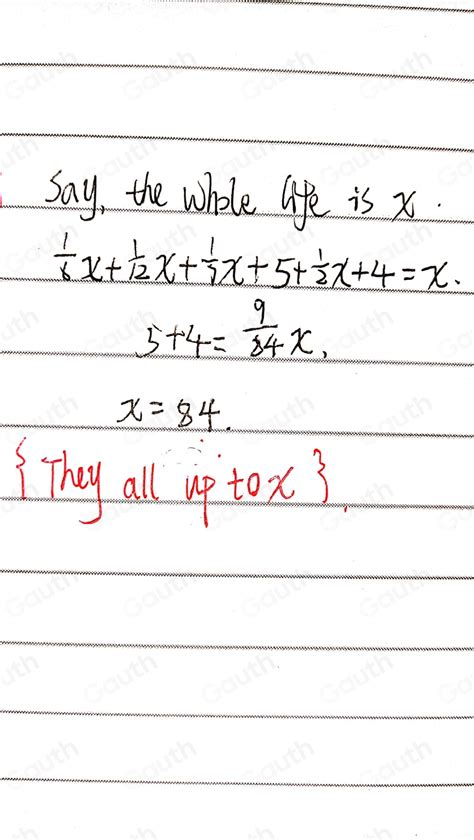 Say, the whole life is x.
1/6 x + 1/12 x + 1/7 x + 5 + 1/2 x + 4 = x.
5+4 = 9/84 x,
x = 84.
{ They all up to x }.